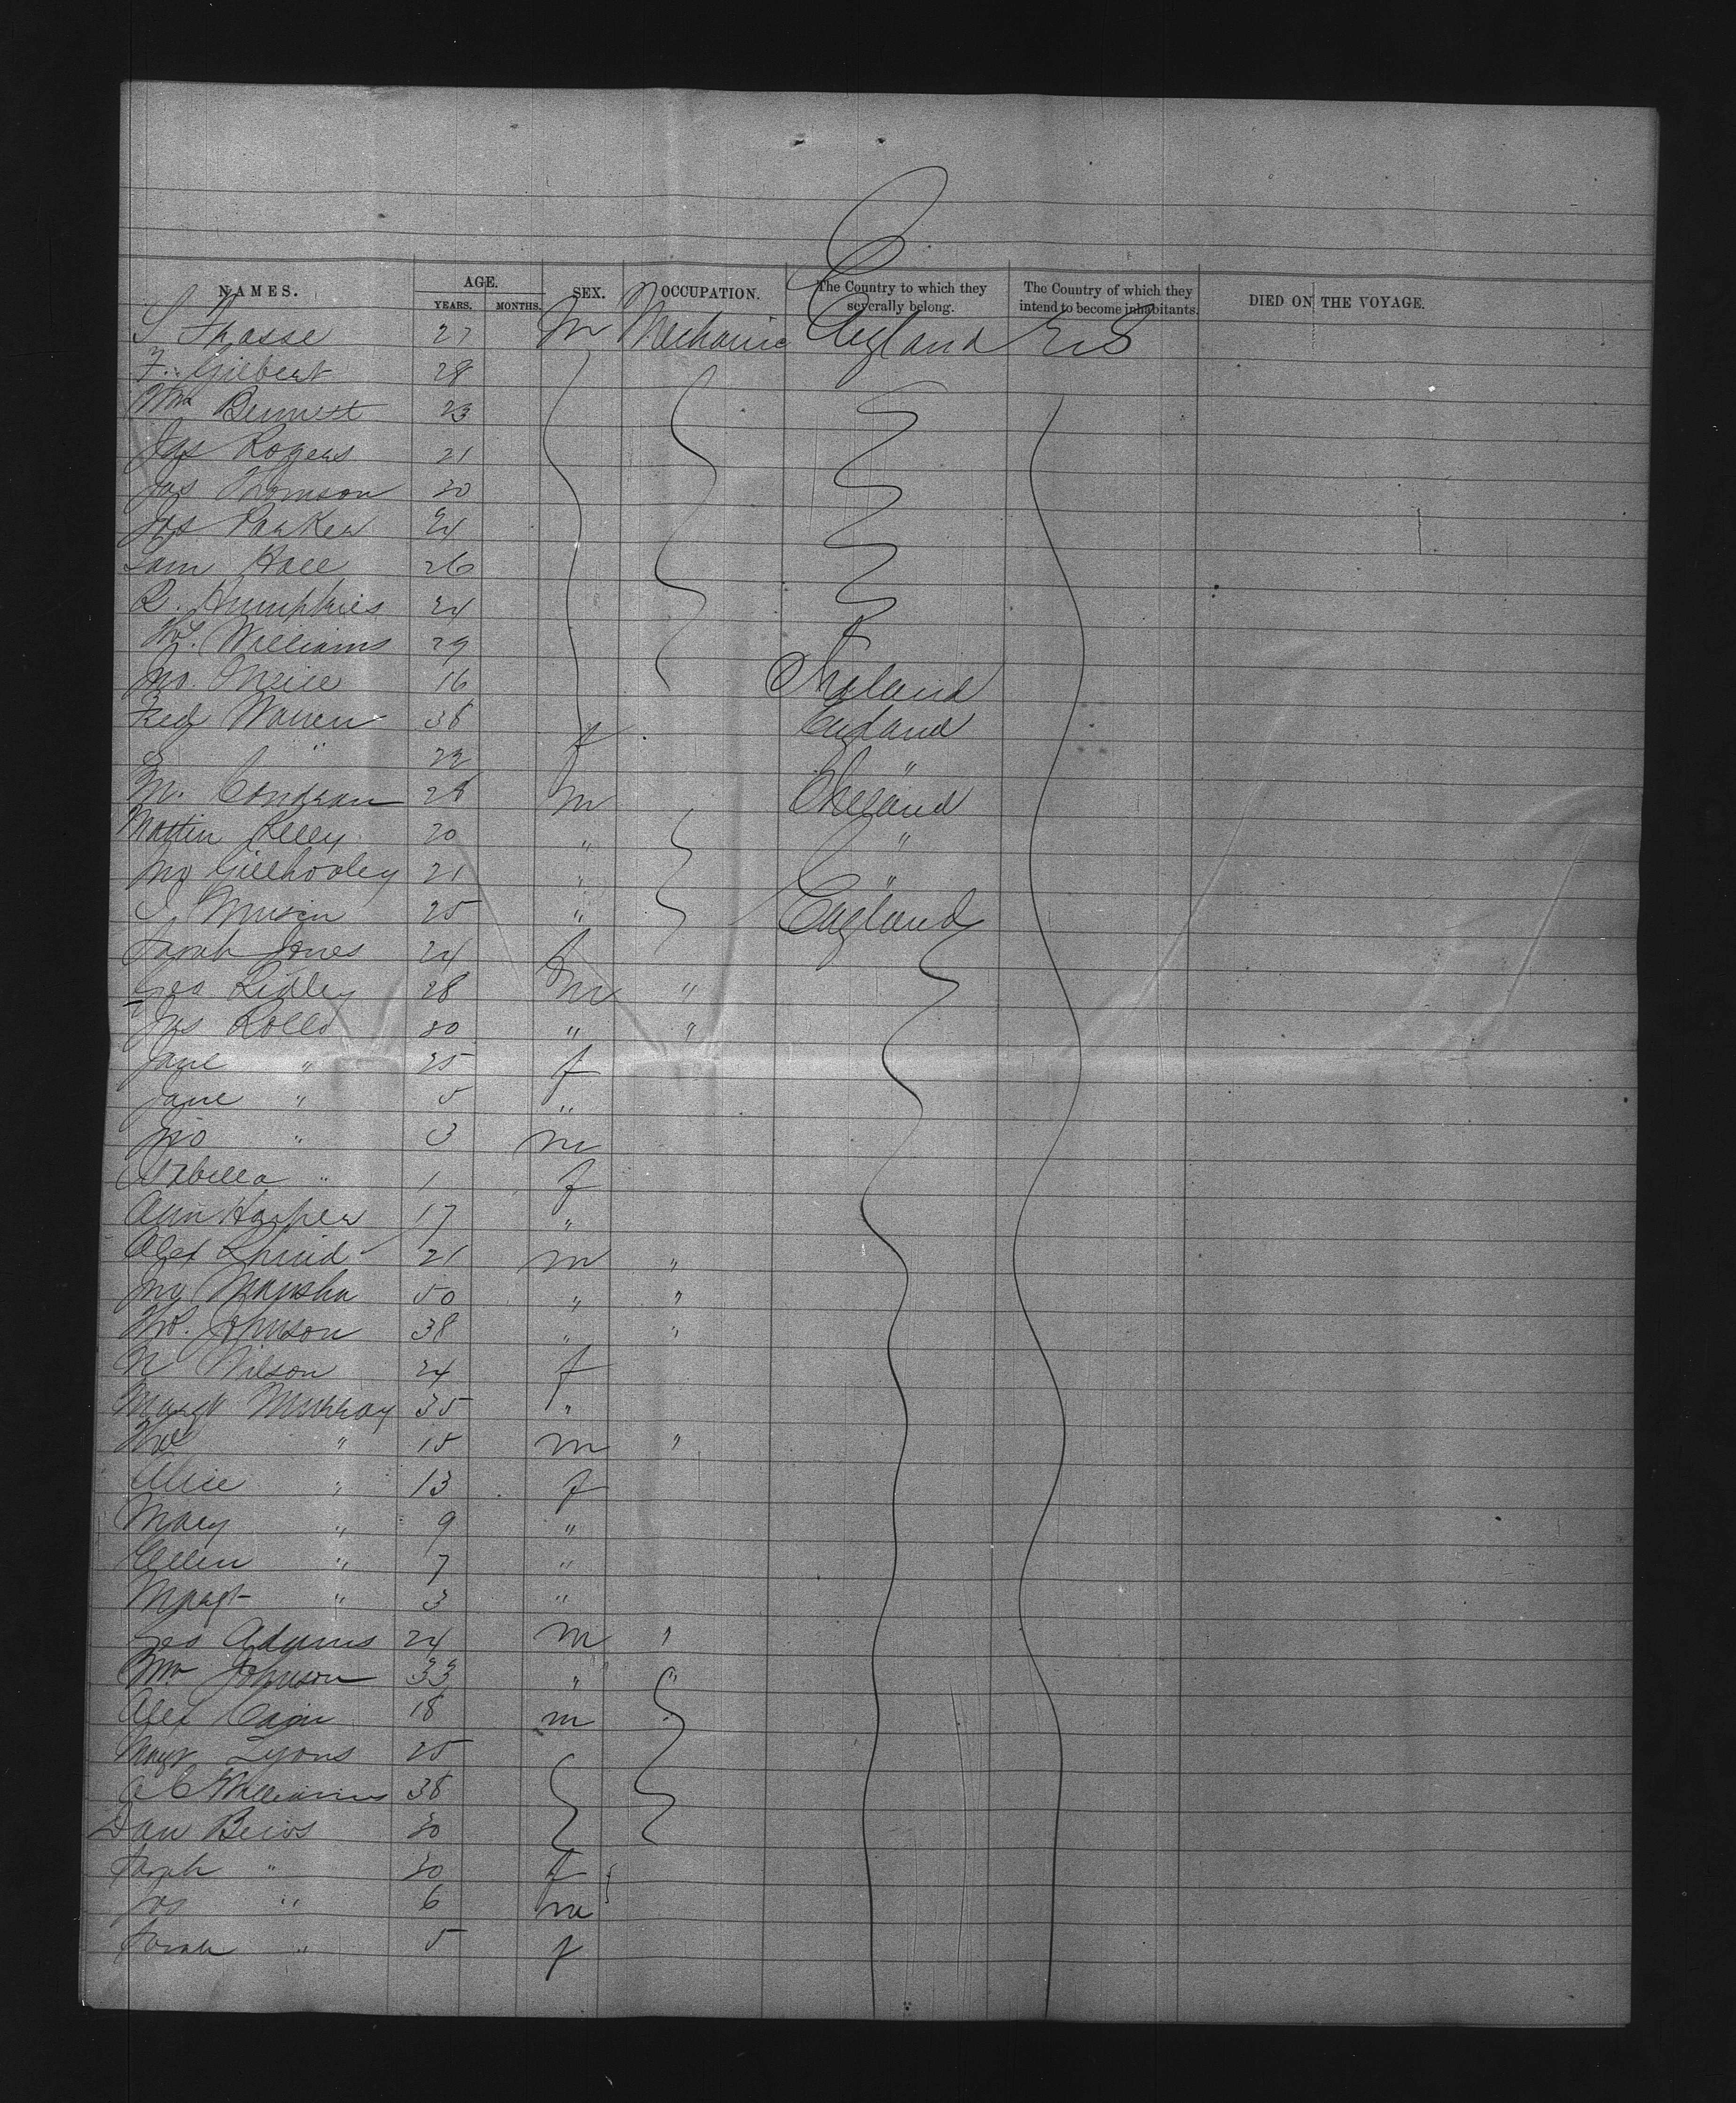 NAMES. AGE. YEARS. MONTHS. SEX. OCCUPATION. The Country to which they severally belong. The Country of which they intend to become inhabitants. DIED ON THE VOYAGE.
27 m Mechanic England U S
F. Gilbert 28
Wm Bennett 23
Jas Rogers 21
Jas Thomson 30
Jos Parker 24
Sam Hall 26
R. Humphries 24
Williams 29
Jno. 16 Ireland
Fred Warren 38 England
" 22 f "
M. Condran 28 m Ireland
Martin Kelly 20 " "
Jno Gillhooley 21 " "
25 " England
Sarah Jones 24 f
Geo Ridley 28 m "
Jas Rollo 30 " "
Jane " 25 f
Jane " 5 "
Jno " 3 m
Isabella " 1 f
Ann Harper 17 "
Alex 21 m "
Jno 50 " "
Johnson 38 " "
N Wilson 24 f
Margt Murray 35 "
" 15 m "
Alice " 13 f
Mary " 9 "
Ellen " 7 "
Margt " 3 "
Geo Adams 24 m "
Wm Johnson 33 " "
Alex Cain 18 m
Margt Lyons 25
A C Williams 38
Dan 30
Sarah " 30 f
Jos " 6 m
Sarah " 5 f